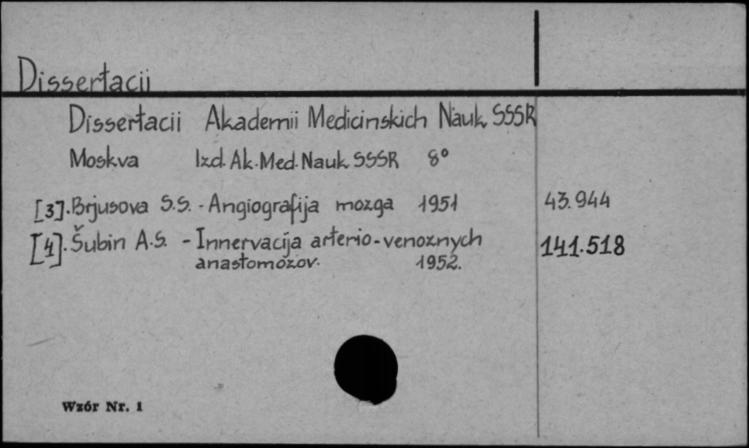 Dissertacii
Dissertacii Akademii Medicinskich Nauk SSSR
Moskva Izd. Ak. Med. Nauk SSSR 8°
[3]. Brjusova S.S. - Angiografija mozga 1951 43.944
[4]. Šubin A.S. - Innervacija arterio-venoznych 141.518
anastomozov. 1952.
Wzór Nr. 1